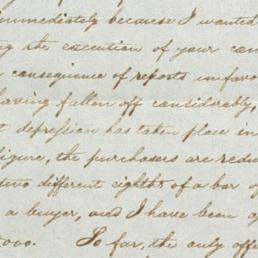 immediately because I wanted
the execution of your com
consequence of reports unfavo
having fallen off considerably,
depression has taken place in
figure, the purchasers are redu
two different eighths of a bar of
a buyer, and I have been o
,000. So far, the only offe